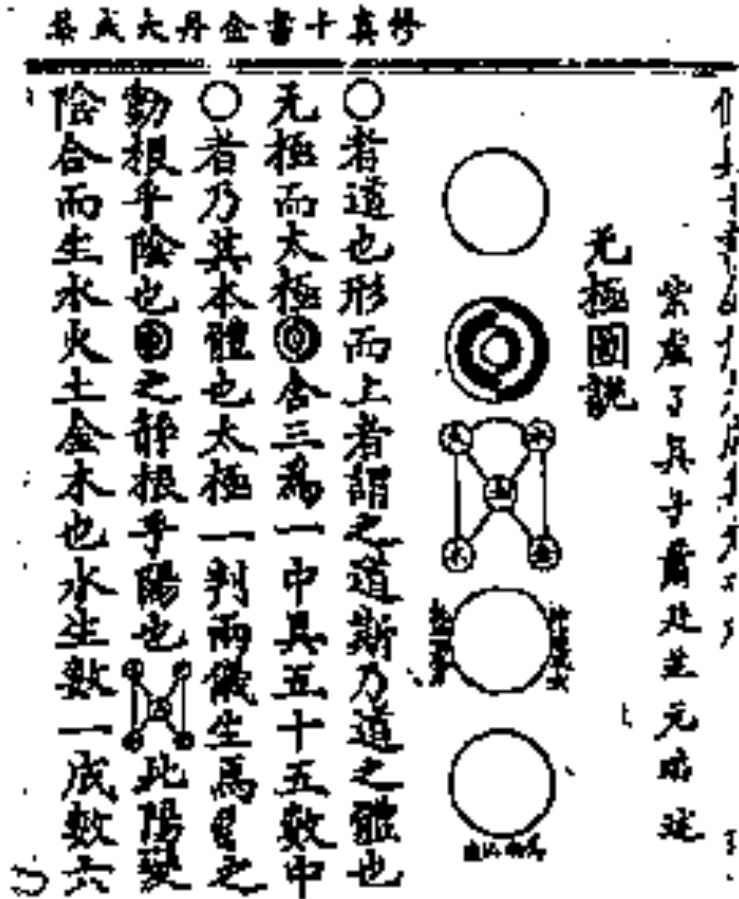 修真十書金丹大成集
紫虛了真子蕭廷芝元瑞述
无極圖說
土
○者道也形而上者謂之道斯乃道之體也
无極而太極◎含三為一中具五十五數中
○者乃其本體也太極一判兩儀生焉之
動根乎陰也◎之靜根乎陽也此陽變
陰合而生水火土金木也水生數一成數六